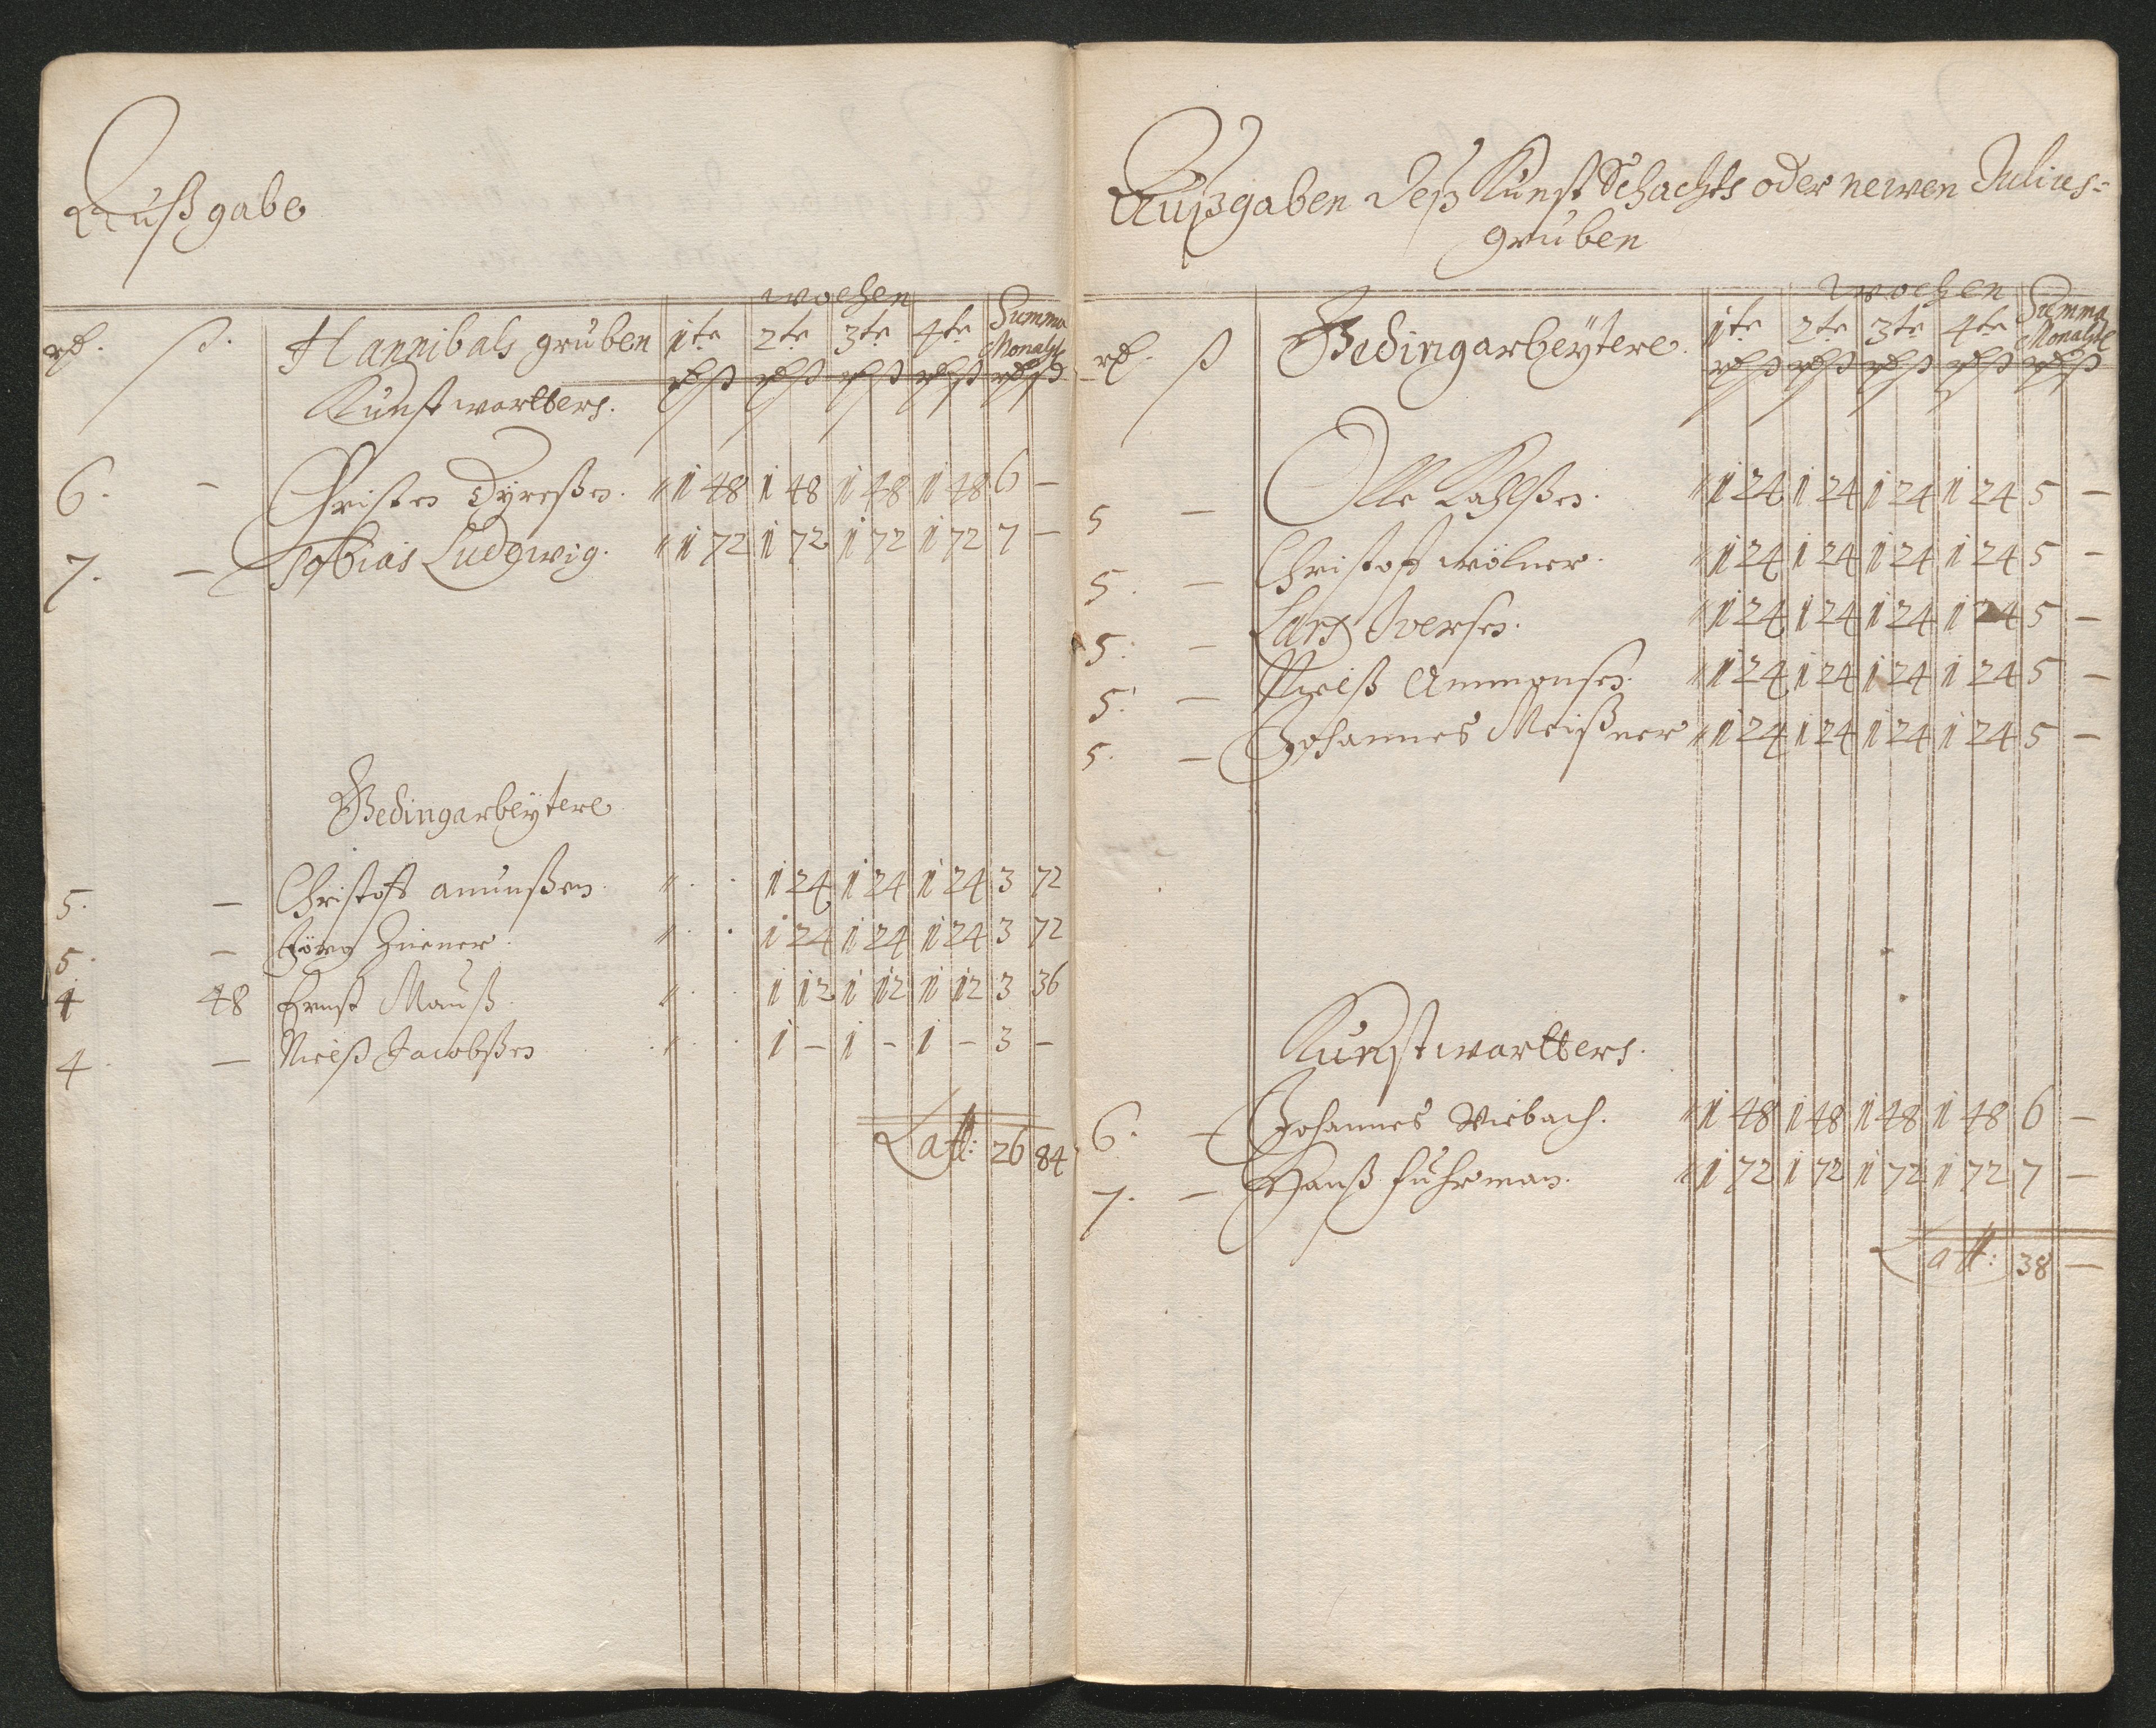 Außgabe
wochen
rd. ß. Hannibals gruben 1te 2te 3te 4te Summa Monatl
Kunstwartters. rd ß rd ß rd ß rd ß rd ß
6. – Christen Dÿreßen. " 1 48 1 48 1 48 1 48 6 –
7. – Tobias Ludewig. " 1 72 1 72 1 72 1 72 7 –
Bedingarbeÿtere
5. – Christoff amunßen. " . . 1 24 1 24 1 24 3 72
5. – Görg " . . 1 24 1 24 1 24 3 72
4 48 Ernst Mauß. " . . 1 12 1 12 1 12 3 36
4. – Nielß Jacobßen " . . 1 – 1 – 1 – 3 –
Latt: 26 84
Außgaben deß Kunst Schachts oder newen Julius=
gruben
wochen
rd. ß Bedingarbeÿtere. 1te 2te 3te 4te Summa Monatl
rd ß rd ß rd ß rd ß rd ß
5 – Olle " 1 24 1 24 1 24 1 24 5 –
5. – Christoff wölner. " 1 24 1 24 1 24 1 24 5 –
5. – Larß Iversen. " 1 24 1 24 1 24 1 24 5 –
5. – Nielß Ammonsen. " 1 24 1 24 1 24 1 24 5 –
5. – Johannes Meißner " 1 24 1 24 1 24 1 24 5 –
Kunstwartters.
6. – Johannes Viebach. " 1 48 1 48 1 48 1 48 6 –
7. – Hanß fuhrman. " 1 72 1 72 1 72 1 72 7 –
Latt: 38 –